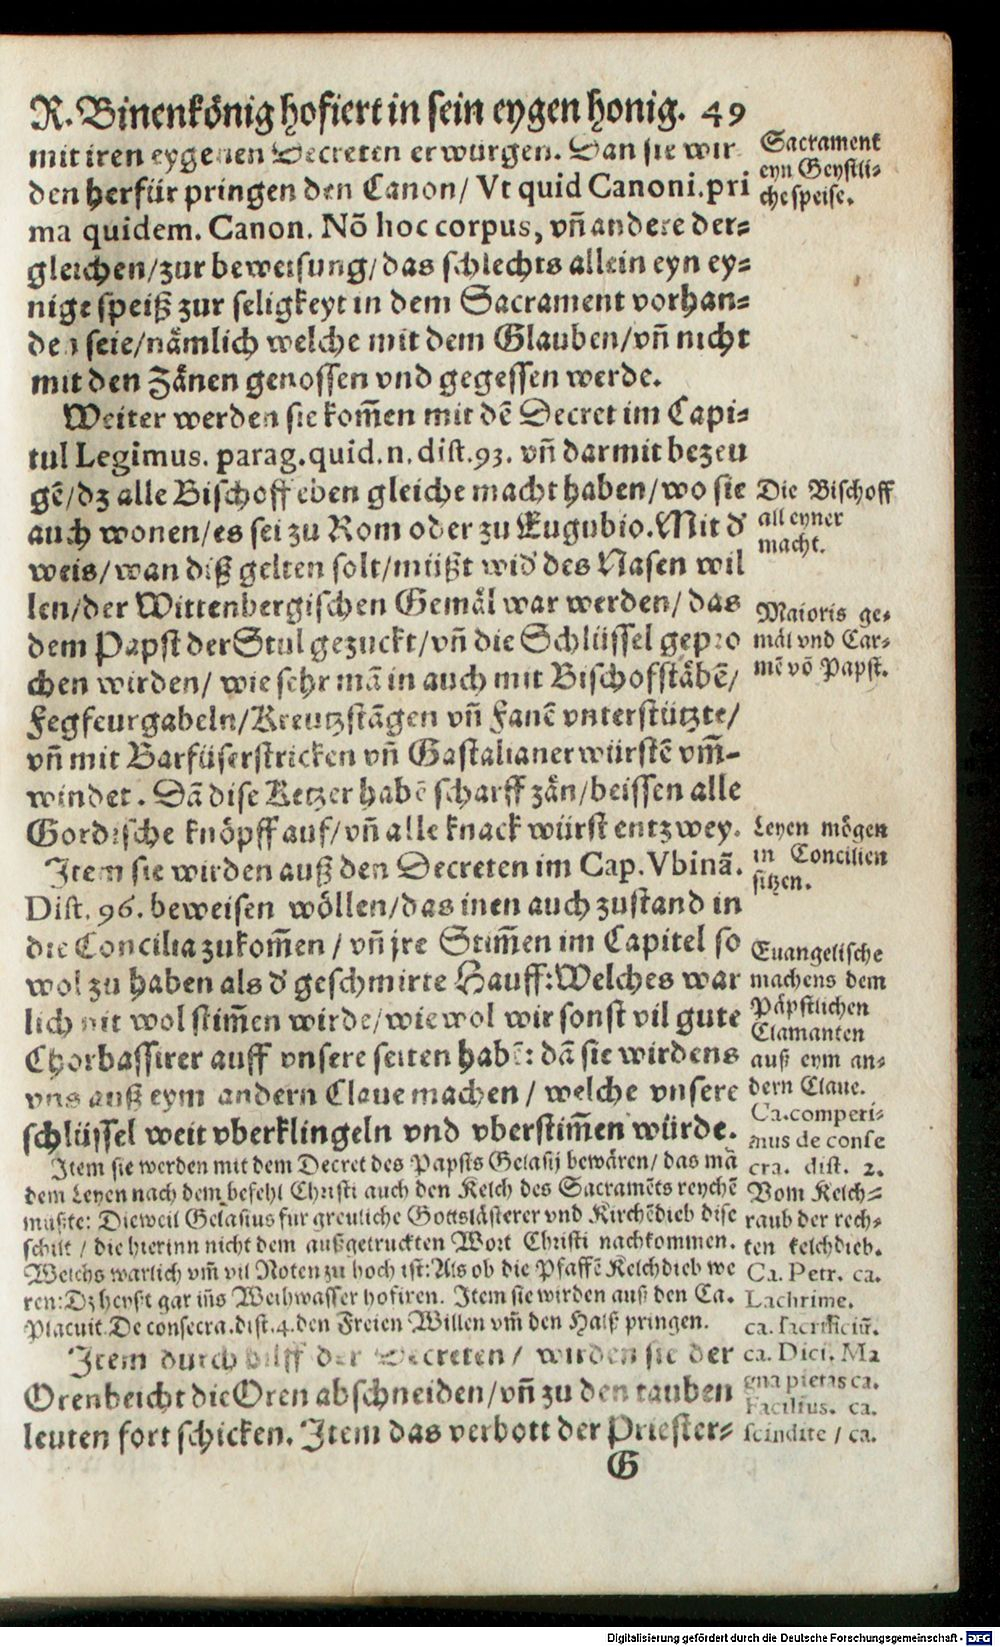 R. Binenkönig hofiert in sein eygen honig. 49
mit iren eygenen Decreten erwürgen. Dan sie wir
den herfür pringen den Canon/ Vt quid Canoni. pri
ma quidem. Canon. Nõ hoc corpus, vñ andere der⸗
gleichen/zur beweisung/das schlechts allein eyn ey⸗
nige speiß zur seligkeyt in dem Sacrament vorhan⸗
den seie/nämlich welche mit dem Glauben/vñ nicht
mit den Zänen genossen vnd gegessen werde.
Weiter werden sie kom̃en mit dẽ Decret im Capi⸗
tul Legimus. parag. quid. n. dist. 93. vñ darmit bezeu
gẽ/dz alle Bischoff eben gleiche macht haben/wo sie
auch wonen/es sei zu Rom oder zu Eugubio. Mit d'
weis/wan diß gelten solt/müßt wid' des Nasen wil
len/der Wittenbergischen Gemäl war werden/das
dem Papst der Stul gezuckt/vñ die Schlüssel gepro
chen wirden/ wie sehr mã in auch mit Bischofstäbẽ/
Fegfeurgabeln/Kreutzstãgen vñ Fanẽ vnterstützte/
vñ mit Barfüserstricken vñ Gastalianerwürstẽ vm̃⸗
windet. Dã dise Ketzer habẽ scharff zän/beissen alle
Gordische knöpff auf/vñ alle knackwürst entzwey.
Item sie wirden auß den Decreten im Cap. Vbinã.
Dist. 96. beweisen wöllen/das inen auch zustand in
die Concilia zukom̃en / vñ jre Stim̃en im Capitel so
wol zu haben als d' geschmirte Hauff: Welches war
lich nit wol stim̃en wirde/wiewol wir sonst vil gute
Chorbassirer auff vnsere seiten habẽ: dã sie wirdens
vns auß eym andern Claue machen / welche vnsere
schlüssel weit vberklingeln vnd vberstim̃en würde.
Item sie werden mit dem Decret des Papsts Gelasij bewären/ das mã
dem Leyen nach dem befehl Christi auch den Kelch des Sacramẽts reychẽ
müßte: Dieweil Gelasius fur greuliche Gottslästerer vnd Kirchẽdieb dise
schilt / die hierinn nicht dem außgetruckten Wort Christi nachkommen.
Welchs warlich vm̃ vil Noten zu hoch ist: Als ob die Pfaffẽ Kelchdieb we
ren: Dz heyßt gar iñs Weihwasser hofiren. Item sie wirden auß den Ca.
Placuit. De consecra. dist. 4. den Freien Willen vm̃ den Halß pringen.
Item durch hilff der Decreten/ wirden sie der
Orenbeicht die Oren abschneiden/vñ zu den tauben
leuten fort schicken. Item das verbott der Priester⸗
G
Sacrament
eyn Geystli⸗
che speise.
Die Bischoff
all eyner
macht.
Maioris ge⸗
mäl vnd Car⸗
mẽ võ Papst.
Leyen mögen
in Concilien
sitzen.
Euangelische
machens dem
Päpstlichen
Clamanten
auß eym an⸗
dern Claue.
Ca. comperi⸗
mus de conse
cra. dist. 2.
Vom Kelch⸗
raub der rech⸗
ten kelchdieb.
Ca. Petr. ca.
Lachrime.
ca. sacrificiũ.
ca. Dici. Ma
gna pietas ca.
Facilius. ca.
scindite / ca.
Digitalisierung gefördert durch die Deutsche Forschungsgemeinschaft - DFG